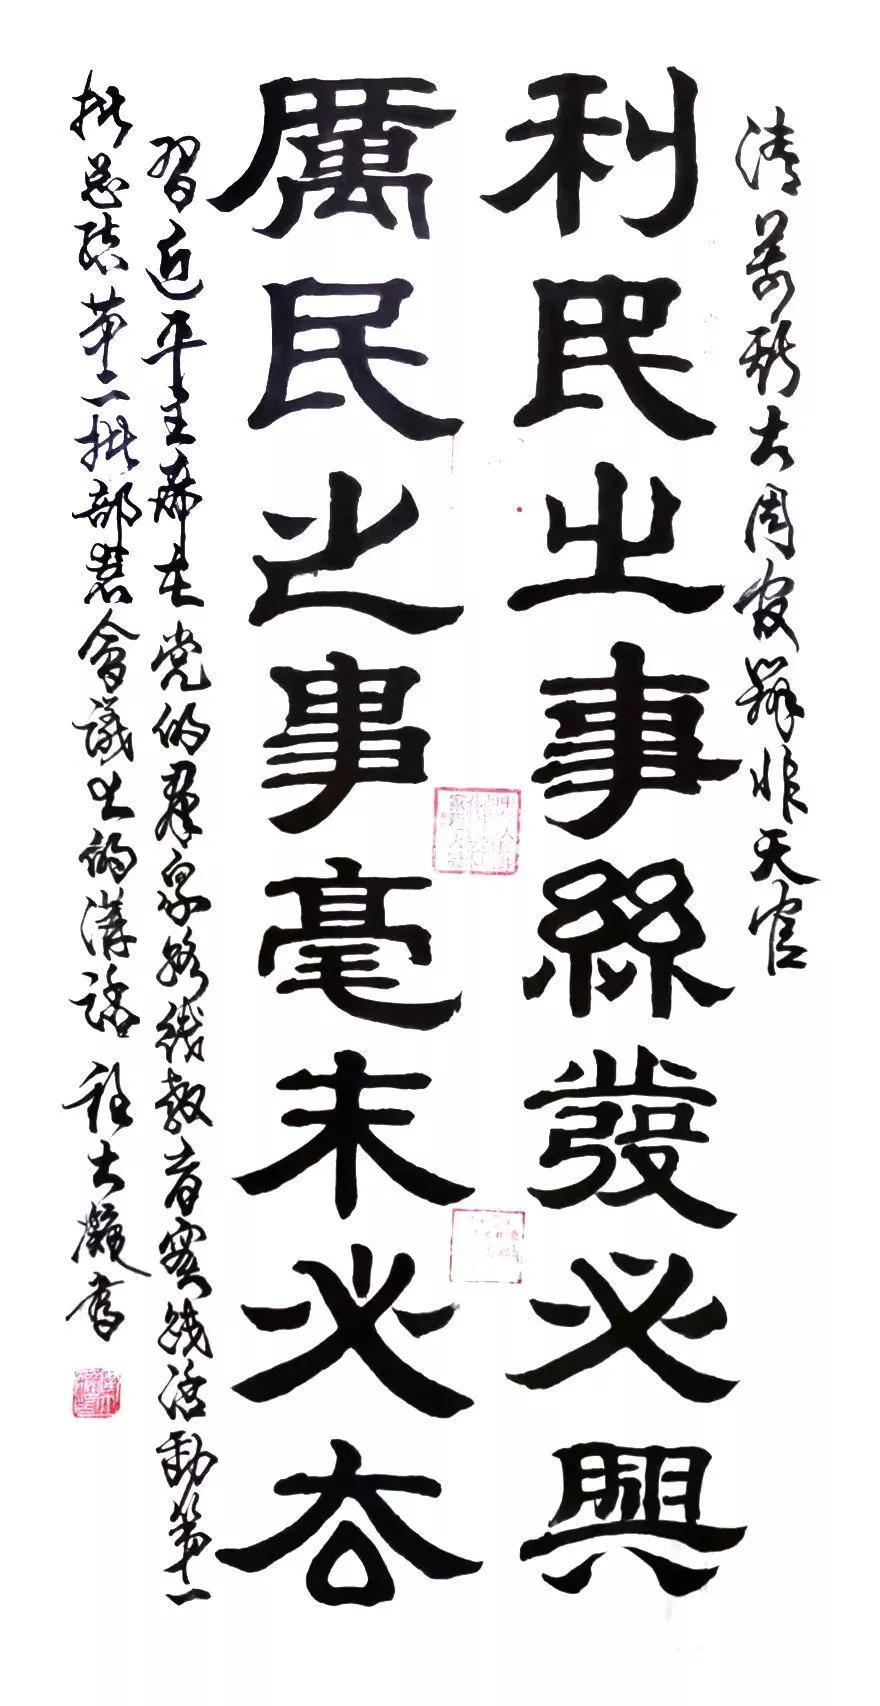 清萬斯大周官辨非天官
利民之事絲發必興
厲民之事毫末必去
習近平主席在党的羣衆路线教育實践活動第一
批总结第二批部署會議上的講話 程大書